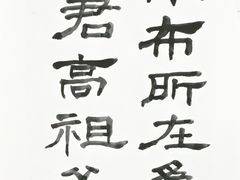 布所在爲
君高祖父